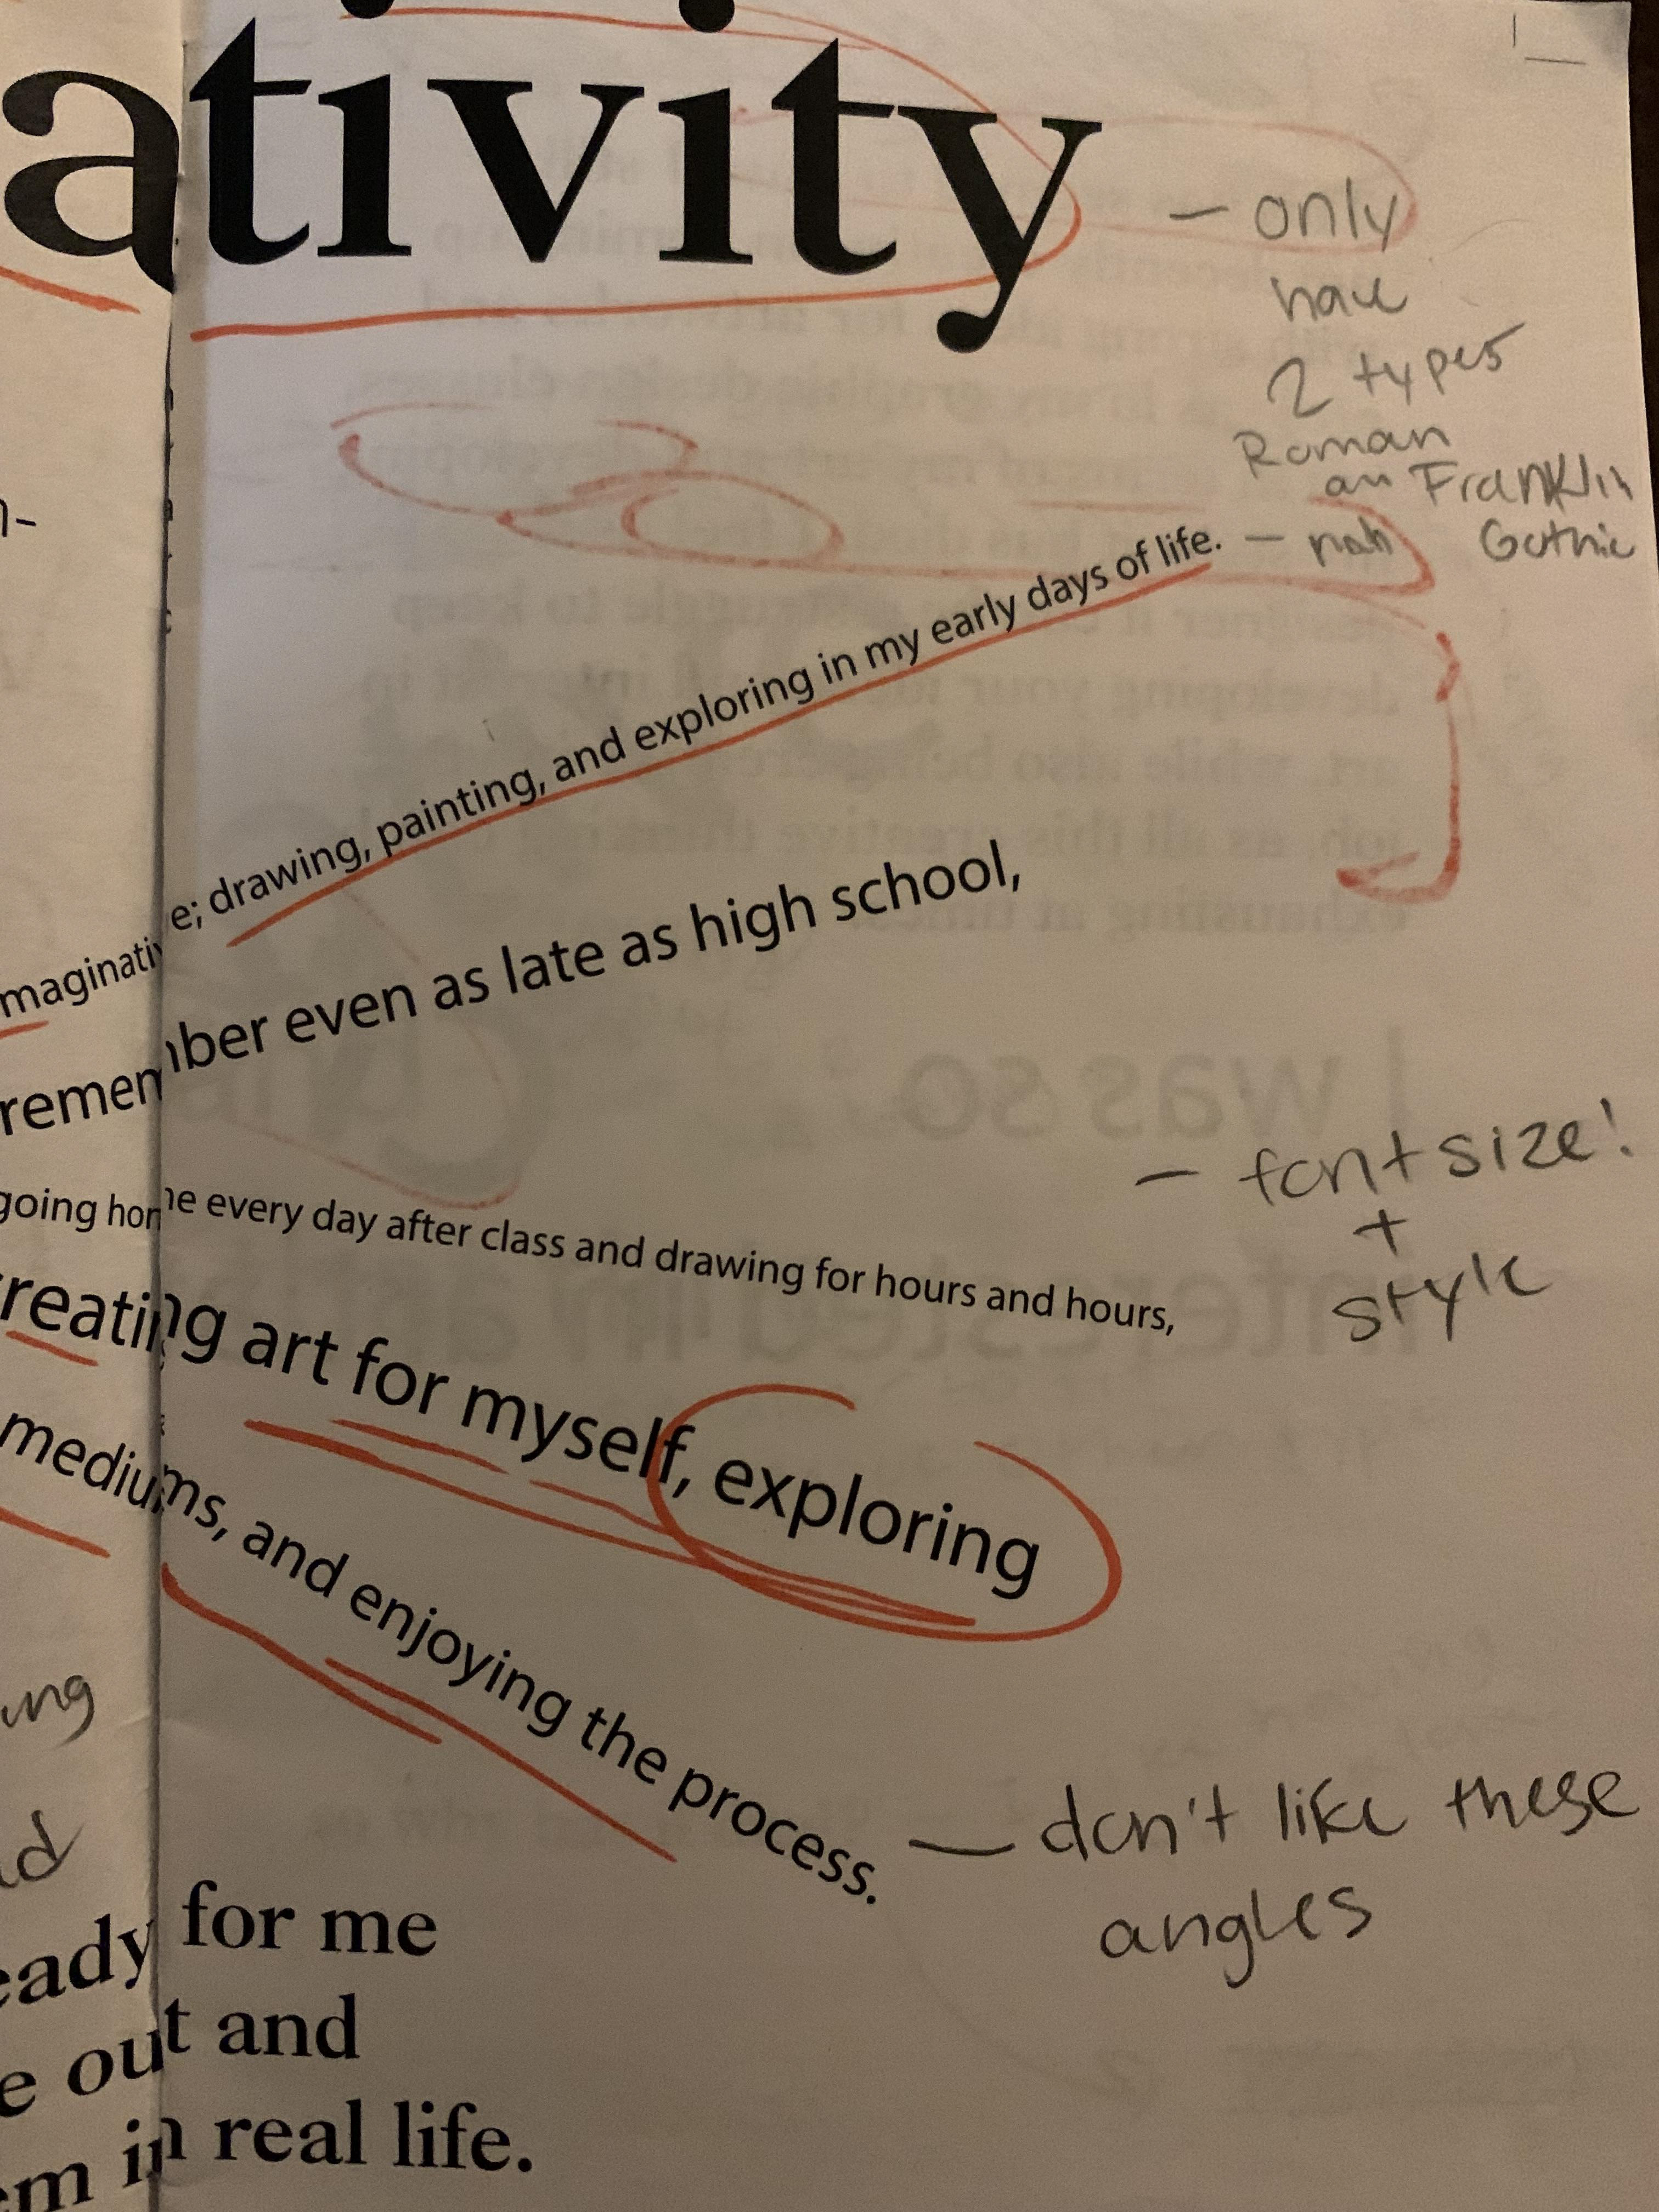 ativity
- only
have
2 types
Roman
an Franklin
Gothic
n-
e; drawing, painting, and exploring in my early days of life. - nah
maginativ
remember even as late as high school,
- font size!
+
style
going home every day after class and drawing for hours and hours,
reating art for myself, exploring
mediums, and enjoying the process.
ing
- don't like these
angles
d
eady for me
e out and
em in real life.
I was so